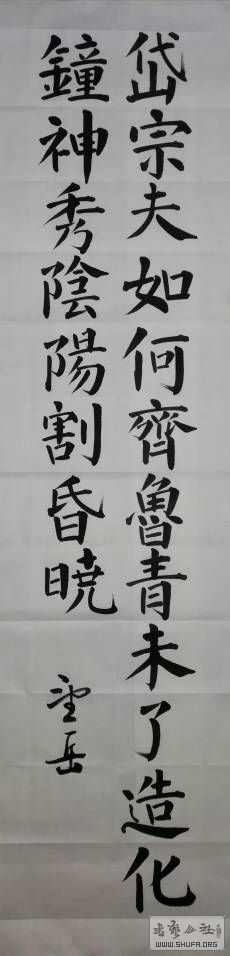 岱宗夫如何齊魯青未了造化
鐘神秀陰陽割昏曉
望岳
书艺公社
WWW.SHUFA.ORG